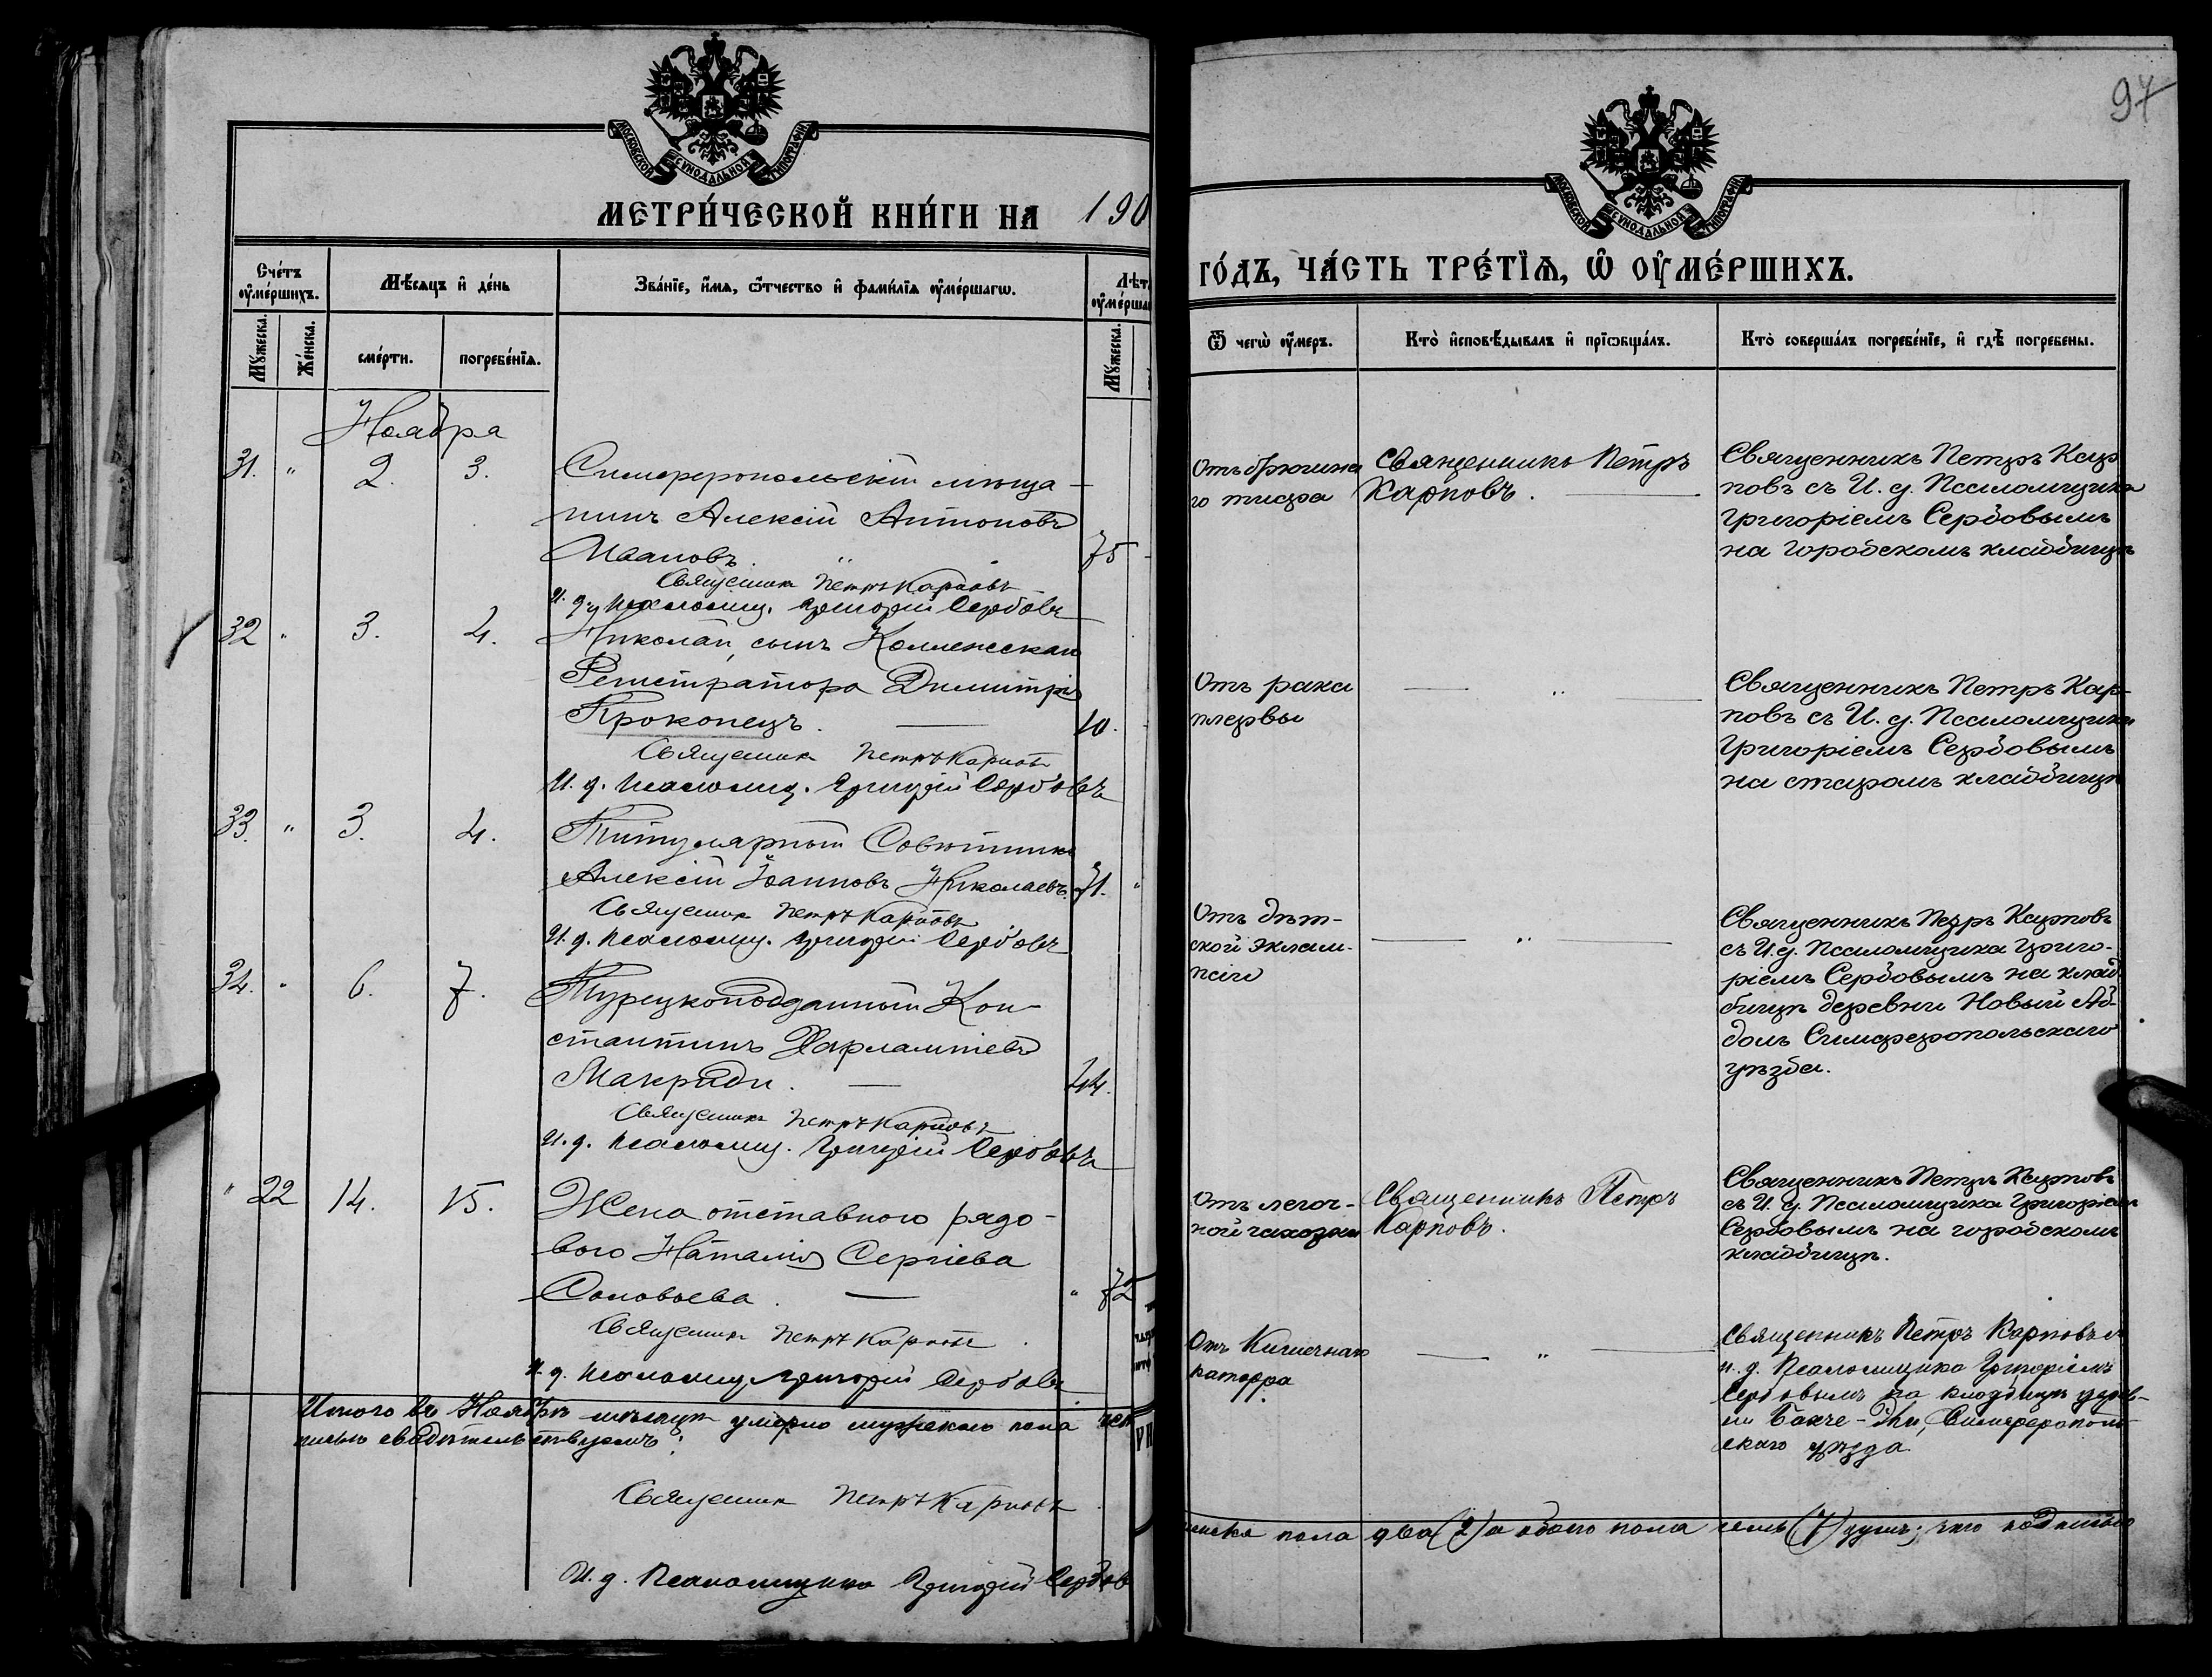 97
МОСКОВСКОЙ СѴНОДАЛЬНОЙ ТИПОГРАФІИ
МЕТРИ́ЧЕСКОЙ КНИ́ГИ НА 190
Сче́тъ оу҆ме́ршихъ.
Мꙋжеска.
Же́нска.
Мѣ́сяцъ и҆ де́нь
сме́рти.
погребе́нїѧ.
Зва́нїе, и҆́мѧ, ѻ҆́тчество и҆ фами́лїѧ оу҆ме́ршагѡ.
Лѣт
оу҆ме́рша
Мꙋжеска.
Ноября
31. " 2. 3. Симферопольскій мѣща-
нинъ Алексій Антоновъ
Ивановъ. " 75
Священникъ Петръ Карповъ
И. д. псаломщ. Григорій Сербовъ
32 " 3. 4. Николай, сынъ Коллежскаго
Регистратора Димитрія
Прокопецъ. — 10.
Священникъ Петръ Карповъ
И. д. псаломщ. Григорій Сербовъ
33. " 3. 4. Титулярный Совѣтникъ
Алексій Іоанновъ Николаевъ 71. "
Священникъ Петръ Карповъ
И. д. псаломщ. Григорій Сербовъ
34. " 6. 7. Турецкоподданный Кон-
стантинъ Харлампіевъ
Макриди. — 44.
Священникъ Петръ Карповъ
И. д. псаломщ. Григорій Сербовъ
" 22 14. 15. Жена отставного рядо-
вого Наталія Сергіева
Соловьева. — " 72
Священникъ Петръ Карповъ
И. д. псаломщ. Григорій Сербовъ
Итого въ Ноябрѣ мѣсяцѣ умерло мужескаго пола
писью свидѣтельствуемъ:
Священникъ Петръ Карповъ
И. д. Псаломщика Григорій Сербов
МОСКОВСКОЙ СѴНОДАЛЬНОЙ ТИПОГРАФІИ
ГО́ДЪ, ЧА́СТЬ ТРЕ́ТЇѦ, Ѡ҆ ОУ҆МЕ́РШИХЪ.
Ѿ чегѡ̀ оу҆́меръ.
Кто̀ и҆сповѣ́дывалъ и҆ прїѡбща́лъ.
Кто̀ соверша́лъ погребе́нїе, и҆ гдѣ̀ погребены.
Отъ брюшна
го тифа
Священникъ Петръ
Карповъ. —
Священникъ Петръ Кар
повъ съ И. д. Псаломщика
Григоріемъ Сербовымъ
на городскомъ кладбищѣ
Отъ рака
— " —
Священникъ Петръ Кар-
повъ съ И. д. Псаломщика
Григоріемъ Сербовымъ
на старомъ кладбищѣ
Отъ дѣт-
ской эклам-
псіи
— " —
Священникъ Петръ Карповъ
съ И. д. Псаломщика Григо-
ріемъ Сербовымъ на клад
бищѣ деревни Новый Аб-
далъ Симферопольскаго
уѣзда.
Отъ легоч-
ной чахотки
Священникъ Петръ
Карповъ.
Священникъ Петръ Карповъ
съ И. д. Псаломщика Григоріемъ
Сербовымъ на городскомъ
кладбищѣ.
Отъ Кишечнаго
катарра
— " —
Священникъ Петръ Карповъ съ
и. д. Псаломщика Григоріемъ
Сербовымъ на кладбищѣ дерев-
ни Бакче-Эли, Симферополь
скаго уѣзда.
пола два (2) а обоего пола семь (7) душъ; что подпи